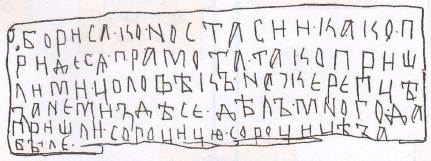 Ѿ БОРИСА·КО·NОСТАСИИ·КАКО·П
РИДЕСА·ГРАМОТА·ТАКО ПРИШ
ЛИ МИ·ЦОЛОВѢКЪ·NАЖЕРЕПЦѢ
ЗАNЕМИЪДѢСЕ·ДѢЛЪМNОГО·ДА
ПРИШЛИ·СОРОЦИЦЮ·СОРОЦИЦѢЗА
БЫЛЕ·